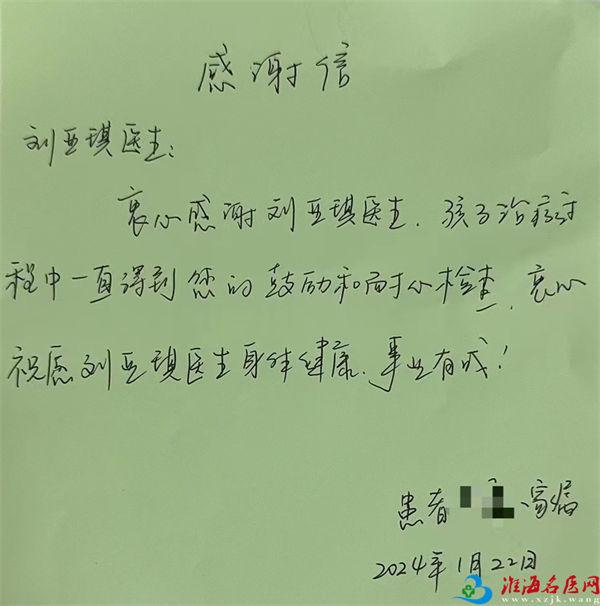 感谢信
刘亚琪医生：
衷心感谢刘亚琪医生，孩子治疗过
程中一直得到您的鼓励和耐心检查，衷心
祝愿刘亚琪医生身体健康、事业有成！
患者 家属
2024年1月22日
淮海名医网
www.xzjk.wang